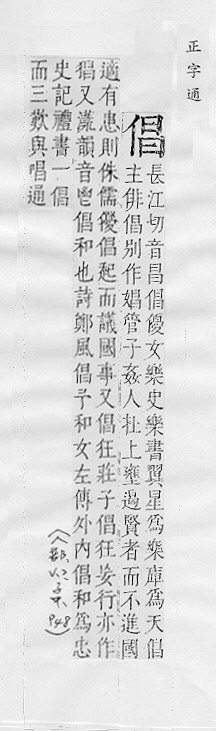 正字通
倡
長江切音昌倡優女樂史樂書翼星爲樂庫爲天倡
主俳倡別作娼管子姦人在上壅遏賢者而不進國
適有患則侏儒優倡起而議國事又倡狂莊子倡狂妄行亦作
猖又漾韻音鬯倡和也詩鄭風倡予和女左傳外內倡和爲忠
史記禮書一倡
而三歎與唱通
(人部 八 948)